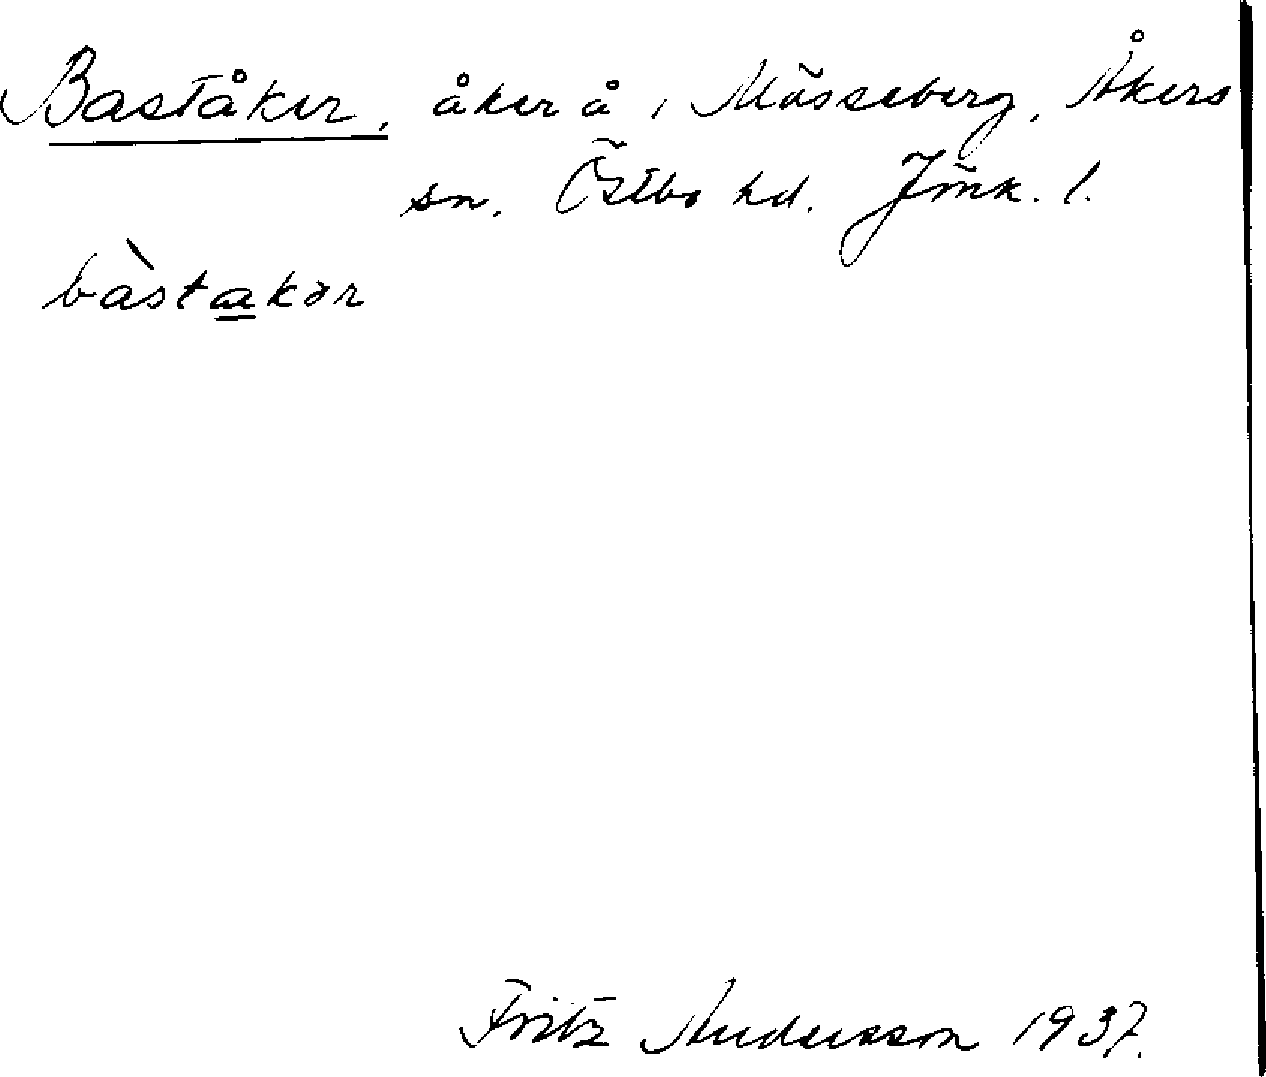 Baståker, åker å, Mösseberg, Åkers
sn. Östbo hd. Jönk. l.
bàstakər
Fritz Andersson 1937.